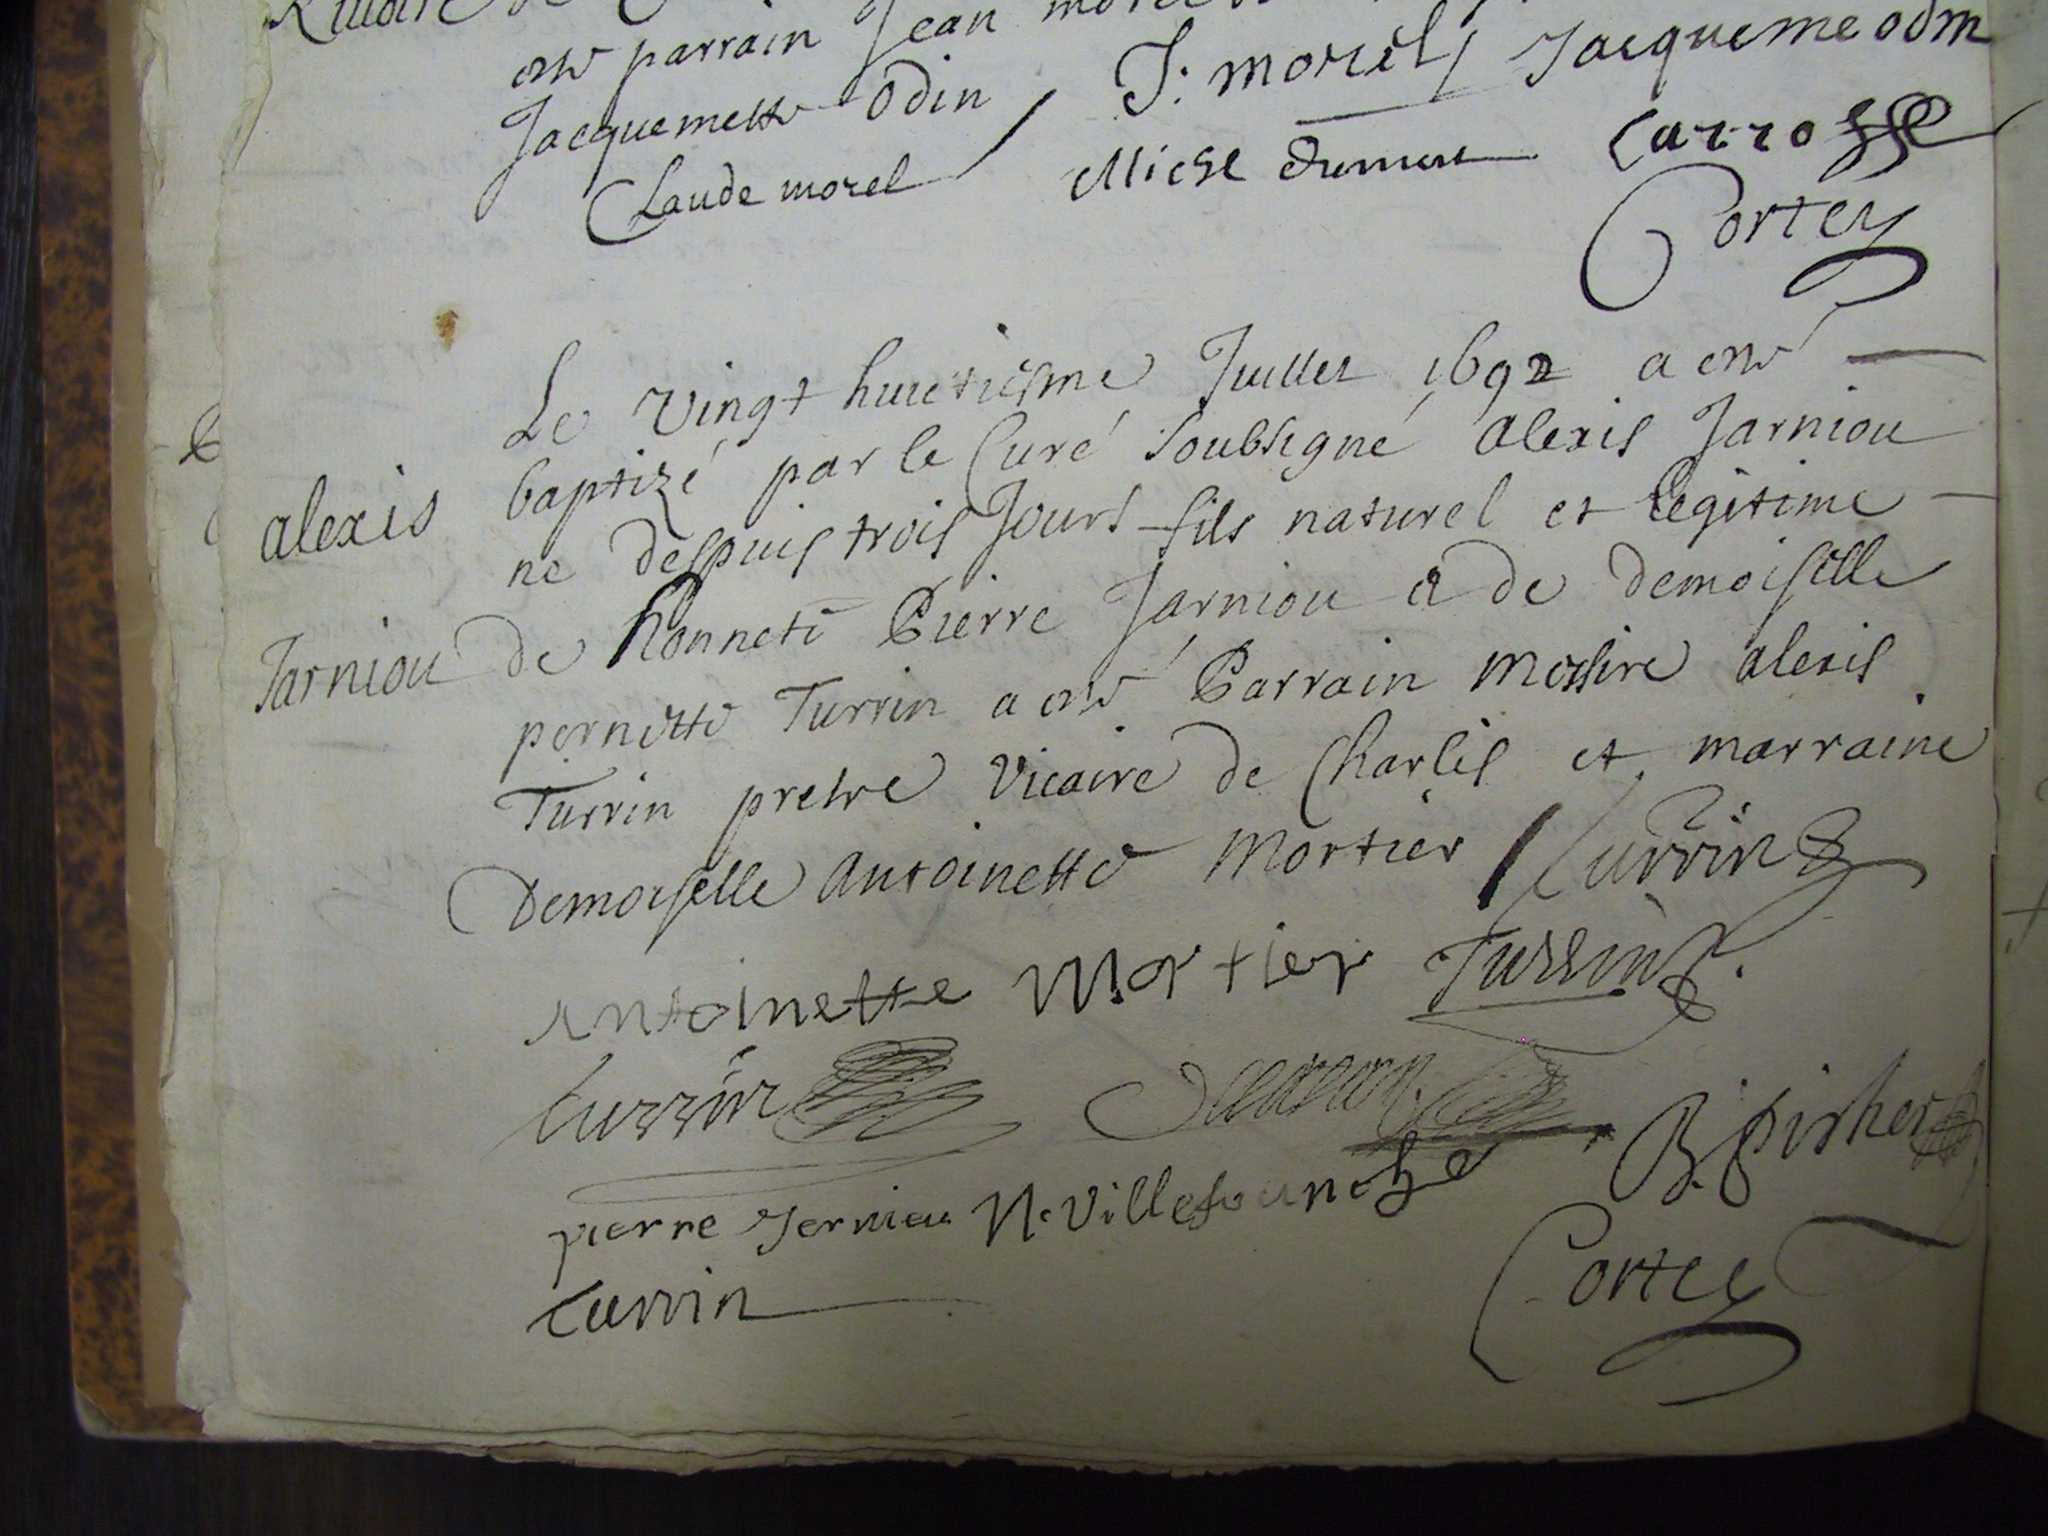 este parrain Jean morel
Jacquemette Odin J. morel Jacqueme odin
Claude morel Michel Carrosse
Cortey
Le vingt huictiesme Juillet 1692 a esté
baptizé par le Curé soubsigné alexis Jarniou
alexis
ne despuis trois Jours fils naturel et legitime
Jarniou
de honnete Pierre Jarniou et de demoiselle
pernette Turrin a esté Parrain Messire alexis
Turrin pretre vicaire de Charlis et marraine
Demoiselle Antoinette Mortier Turrin
Antoinette Mortier Turrin
turrin
pierre Jerniou N. Villefranche
turrin
Cortey